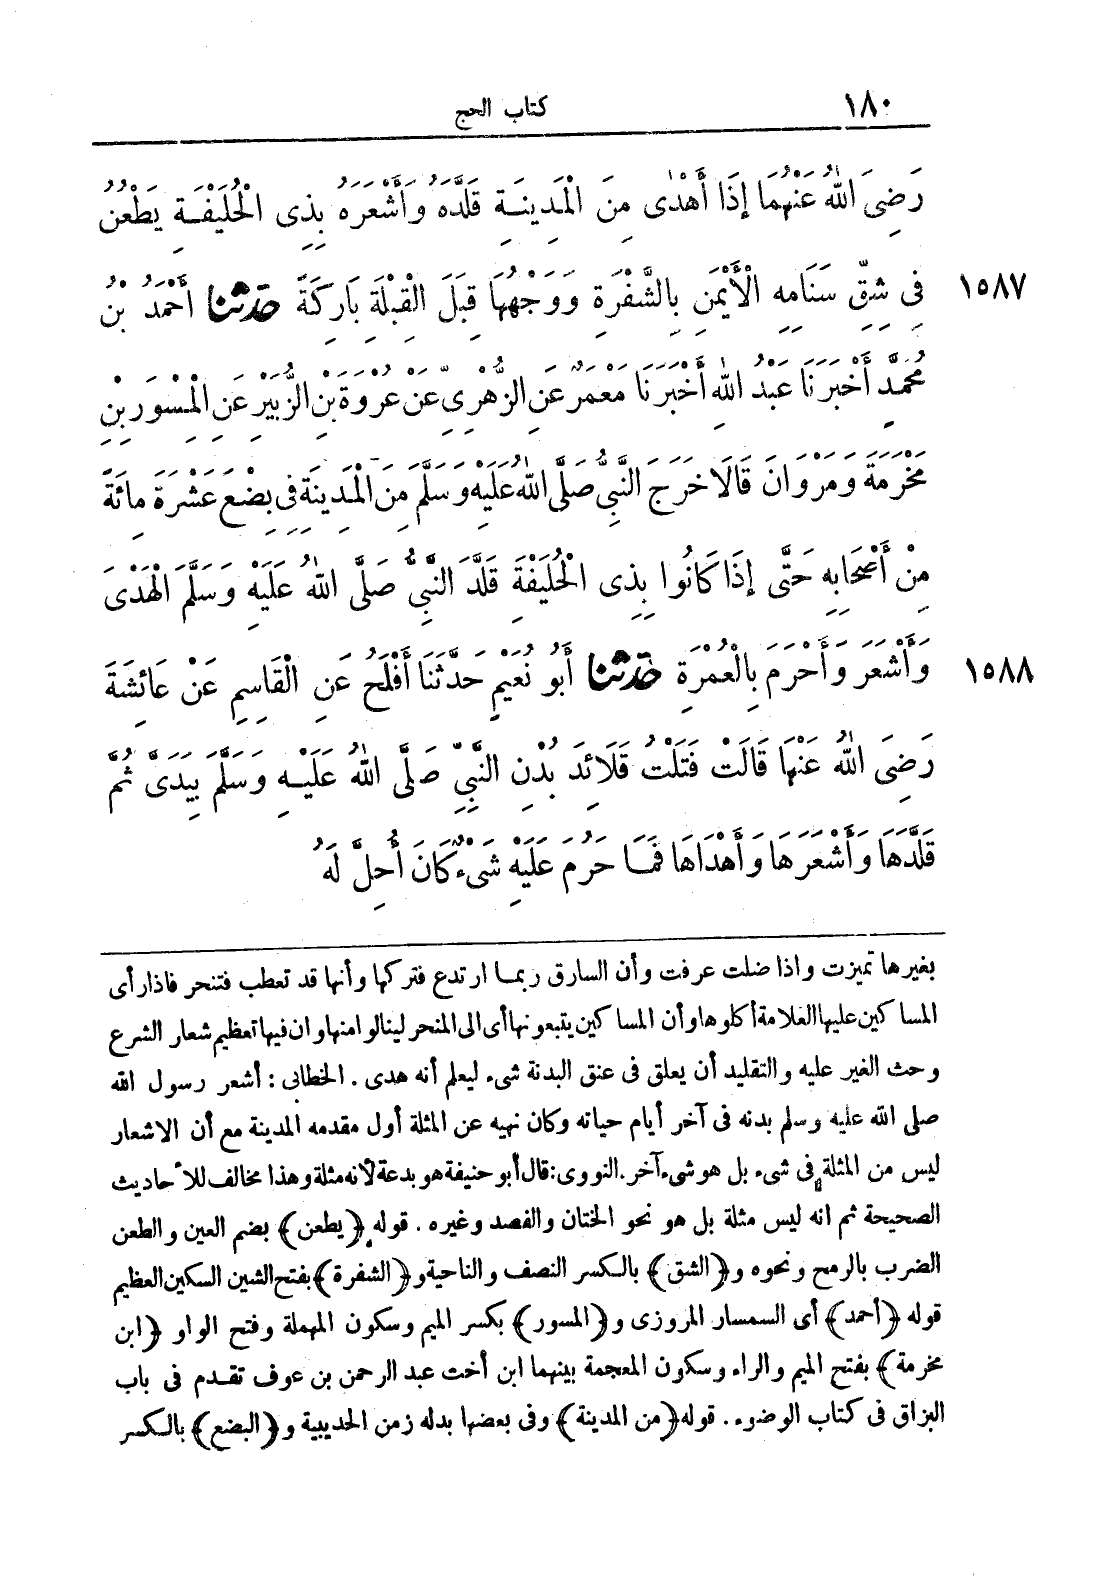 ١٨٠ كتاب الحج
رَضِىَ اللّٰهُ عَنْهُمَا إِذَا أَهْدٰى مِنَ الْمَدِينَةِ قَلَّدَهُ وَأَشْعَرَهُ بِذِى الْحُلَيْفَةِ يَطْعُنُ
١٥٨٧ فِى شِقِّ سَنَامِهِ الْأَيْمَنِ بِالشَّفْرَةِ وَوَجْهُهَا قِبَلَ الْقِبْلَةِ بَارِكَةً حَدَّثَنَا أَحْمَدُ بْنُ
مُحَمَّدٍ أَخْبَرَنَا عَبْدُ اللّٰهِ أَخْبَرَنَا مَعْمَرٌ عَنِ الزُّهْرِىِّ عَنْ عُرْوَةَ بْنِ الزُّبَيْرِ عَنِ الْمِسْوَرِ بْنِ
مَخْرَمَةَ وَمَرْوَانَ قَالَا خَرَجَ النَّبِىُّ صَلَّى اللّٰهُ عَلَيْهِ وَسَلَّمَ مِنَ الْمَدِينَةِ فِى بِضْعَ عَشْرَةَ مِائَةً
مِنْ أَصْحَابِهِ حَتَّى إِذَا كَانُوا بِذِى الْحُلَيْفَةِ قَلَّدَ النَّبِىُّ صَلَّى اللّٰهُ عَلَيْهِ وَسَلَّمَ الْهَدْىَ
١٥٨٨ وَأَشْعَرَ وَأَحْرَمَ بِالْعُمْرَةِ حَدَّثَنَا أَبُو نُعَيْمٍ حَدَّثَنَا أَفْلَحُ عَنِ الْقَاسِمِ عَنْ عَائِشَةَ
رَضِىَ اللّٰهُ عَنْهَا قَالَتْ فَتَلْتُ قَلَائِدَ بُدْنِ النَّبِىِّ صَلَّى اللّٰهُ عَلَيْهِ وَسَلَّمَ بِيَدَىَّ ثُمَّ
قَلَّدَهَا وَأَشْعَرَهَا وَأَهْدَاهَا فَمَا حَرُمَ عَلَيْهِ شَىْءٌ كَانَ أُحِلَّ لَهُ
بغيرها تميزت واذا ضلت عرفت وأن السارق ربما ارتدع فتركها وأنها قد تعطب فتنحر فاذا رأى
المساكين عليها العلامة أكلوها وأن المساكين يتبعونها أى الى المنحر لينالوا منها وان فيها تعظيم شعار الشرع
وحث الغير عليه والتقليد أن يعلق فى عنق البدنة شىء ليعلم أنه هدى . الخطابى : أشعر رسول الله
صلى الله عليه وسلم بدنه فى آخر أيام حياته وكان نهيه عن المثلة أول مقدمه المدينة مع أن الاشعار
ليس من المثلة فى شىء بل هو شىء آخر . النووى : قال أبو حنيفة هو بدعة لأنه مثلة وهذا مخالف للأحاديث
الصحيحة ثم انه ليس مثلة بل هو نحو الختان والفصد وغيره . قوله (يطعن) بضم العين والطعن
الضرب بالرمح ونحوه و(الشق) بالكسر النصف والناحية و(الشفرة) بفتح الشين السكين العظيم
قوله (أحمد) أى السمسار المروزى و(المسور) بكسر الميم وسكون المهملة وفتح الواو (ابن
مخرمة) بفتح الميم والراء وسكون المعجمة بينهما ابن أخت عبد الرحمن بن عوف تقدم فى باب
البزاق فى كتاب الوضوء . قوله (من المدينة) وفى بعضها بدله زمن الحديبية و(البضع) بالكسر